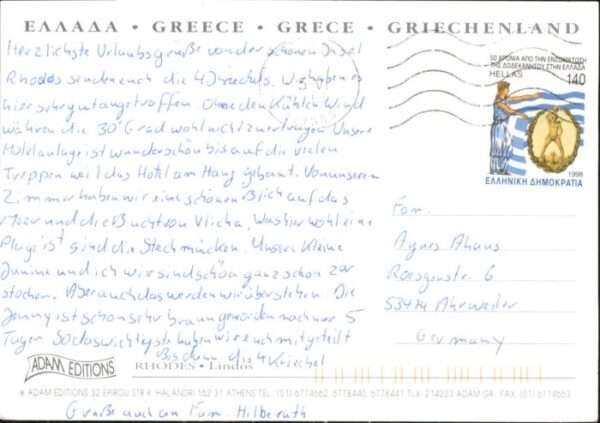 ΕΛΛΑΔΑ • GREECE • GRECE • GRIECHENLAND
Herzlichste Urlaubsgrüße von der schönen Insel
Rhodos senden euch die 4 Knechels. Wir haben es
hier sehr gut angetroffen. Ohne den Kühlen Wind
währen die 30° Grad wohl nicht zu ertragen. Unsere
Hotelanlage ist wunderschön bis auf die vielen
Treppen weil das Hotel am Hang gebaut. Von unserem
Zimmer haben wir einen schönen Blick auf das
Meer und die Bucht von Vlicha. Was hier wohl eine
Plage ist sind die Stechmücken. Unsere Kleine
und ich wir sind schön ganz schön zer
stochen. Aber auch das werden wir überstehen. Die
Jenny ist schon sehr braun geworden nach nur 5
Tagen. So das wichtigste haben wir euch mitgeteilt
Bis dann die 4 Knechel
Grüße auch an Fam. Hilberath
50 ΧΡΟΝΙΑ ΑΠΟ ΤΗΝ ΕΝΣΩΜΑΤΩΣΗ
ΤΗΣ ΔΩΔΕΚΑΝΗΣΟΥ ΣΤΗΝ ΕΛΛΑΔΑ
HELLAS 140
1998
ΕΛΛΗΝΙΚΗ ΔΗΜΟΚΡΑΤΙΑ
Fam.
Agnes Ahaus
6
53474 Ahrweiler
Germany
ADAM EDITIONS
RHODES • Lindos
ADAM EDITIONS 32 EPIROU STR • HALANDRI 152 31 ATHENS TEL: (01) 6774662, 6778445, 6778441 TLX: 214223 ADAM GR. /FAX: (01) 6774663